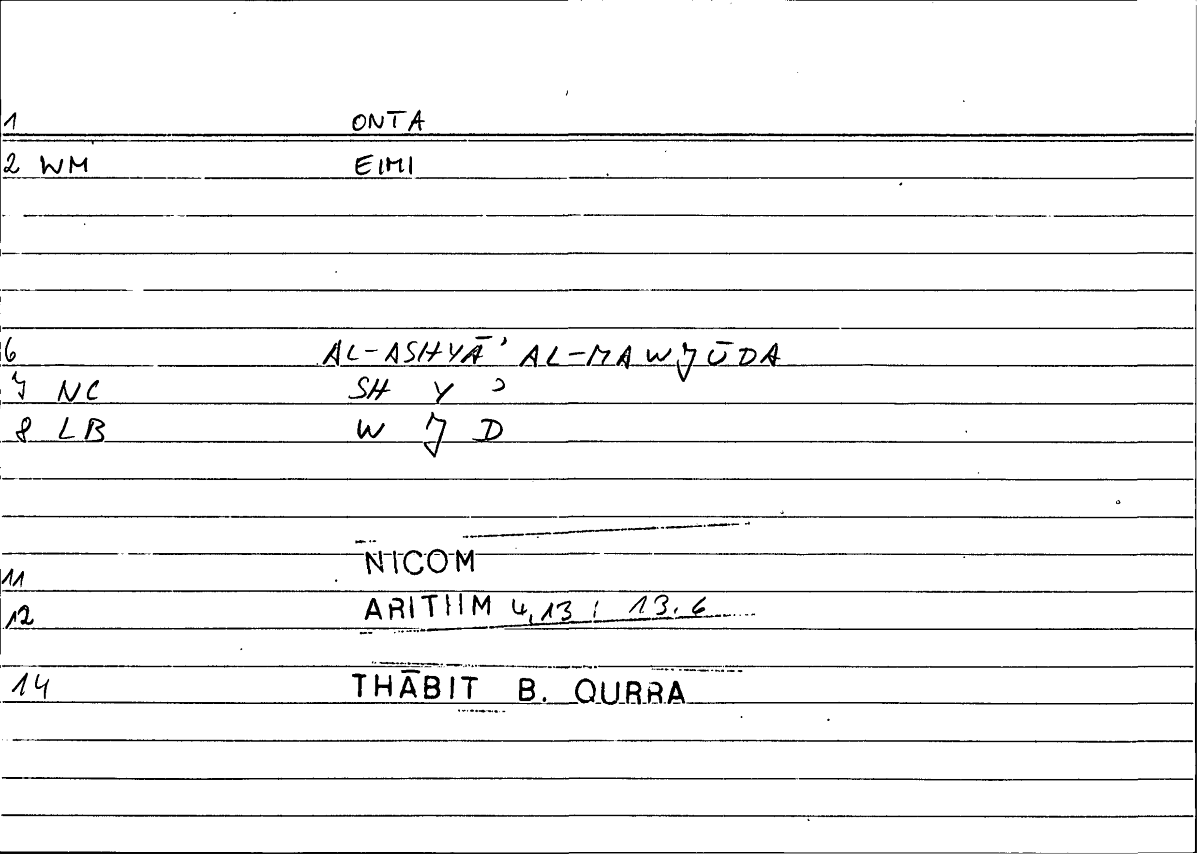 1 ONTA
2 WM EIMI
6 AL-ASHYĀʾ AL-MAWJŪDA
7 NC SH Y ʾ
8 LB W J D
11 NICOM
12 ARITHM 4,13 ; 13.6
14 THĀBIT B. QURRA